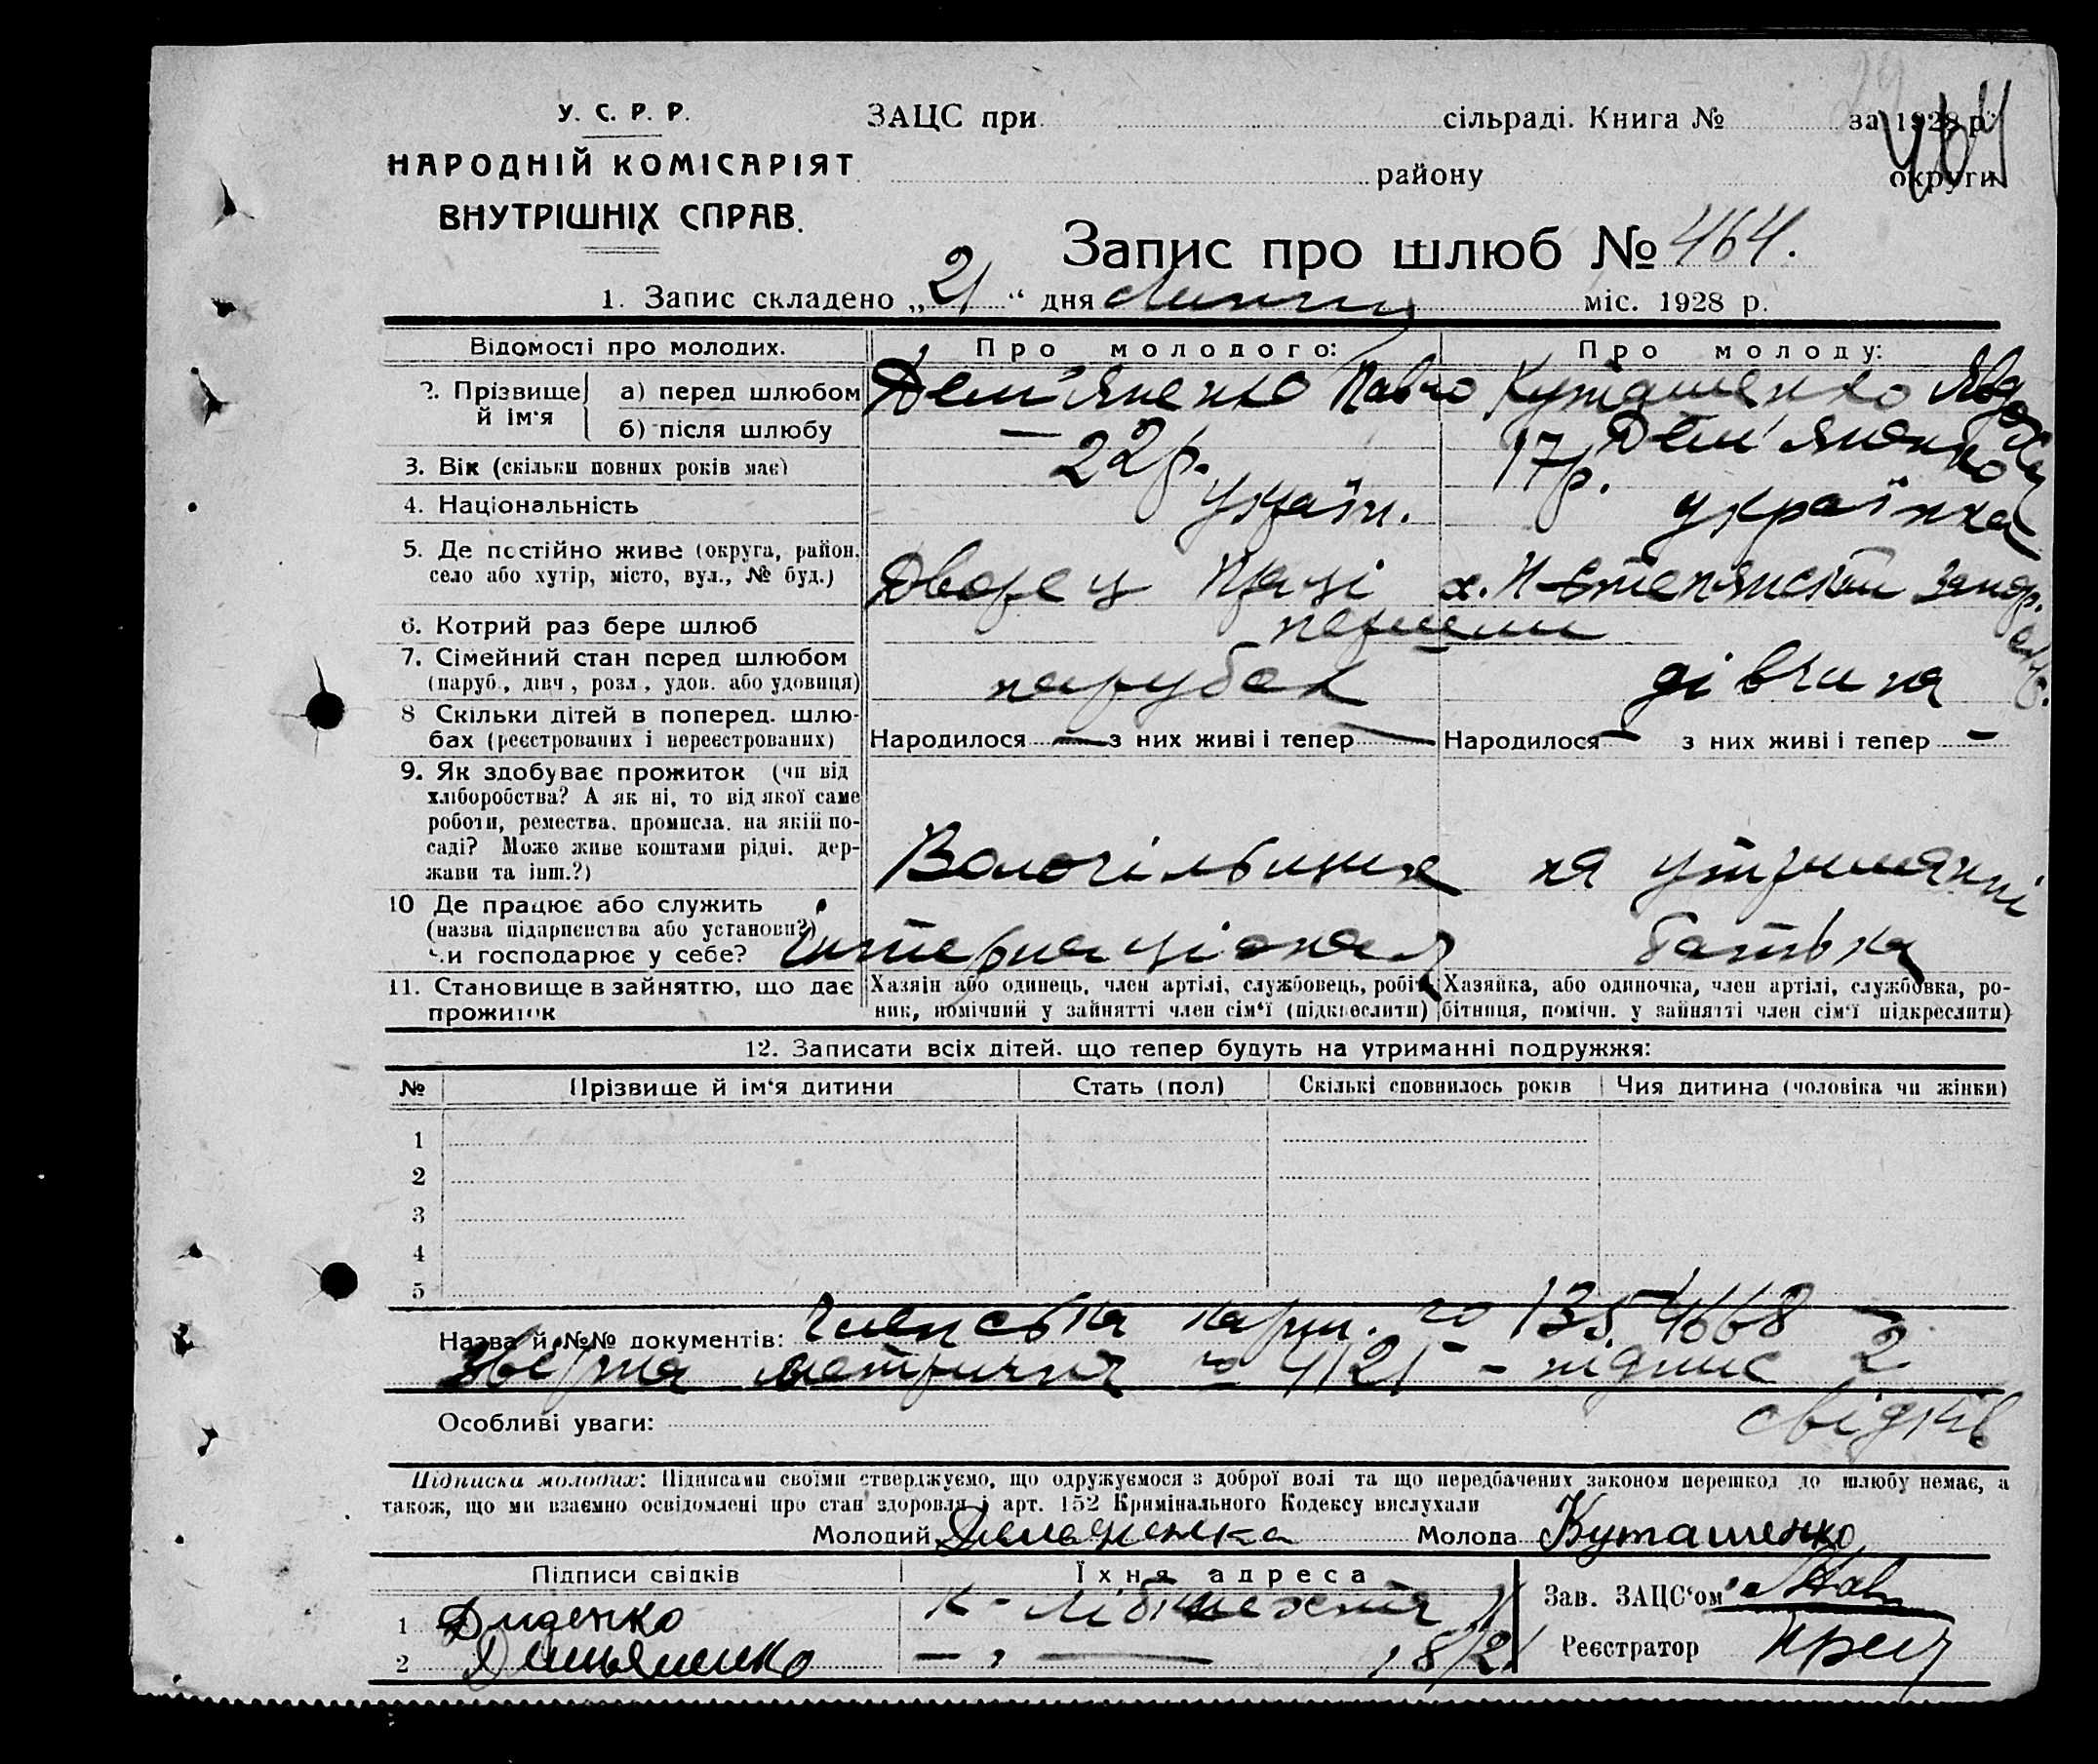 У. С. Р. Р.
НАРОДНІЙ КОМІСАРІЯТ
ВНУТРІШНІХ СПРАВ.
ЗАЦС при сільраді. Книга № за 1928 р.
464
району округи
Запис про шлюб № 464.
1. Запис складено „21“ дня Липня міс. 1928 р.
Відомості про молодих.
Про молодого:
Про молоду:
2. Прізвище й ім'я
а) перед шлюбом
Дем'яненко Павло
Куташенко Явдоха
б) після шлюбу
—
Дем'яненко
3. Вік (скільки повних років має)
22 р.
17 р.
4. Національність
Україн.
українка
5. Де постійно живе (округа, район, село або хутір, місто, вул., № буд.)
Дворец Праці
х. Запор. окр.
6. Котрий раз бере шлюб
перший
7. Сімейний стан перед шлюбом
(паруб., дівч., розл., удов. або удовиця)
парубок
дівчина
8 Скільки дітей в поперед. шлюбах (реєстрованих і нереєстрованих)
Народилося — з них живі і тепер —
Народилося — з них живі і тепер —
9. Як здобуває прожиток (чи від
хліборобства? А як ні, то від якої саме
роботи, ремества, промисла, на якій по-
саді? Може живе коштами рідні, дер-
жави та інш.?)
на утриманні
10 Де працює або служить
(назва підприємства або установи?)
чи господарює у себе?
Інтернаціонал
батька
11. Становище в зайняттю, що дає
прожиток
Хазяін або одинець, член артілі, службовець, робіт-
ник, помічний у зайнятті член сім'ї (підкреслити)
Хазяйка, або одиночка, член артілі, службовка, ро-
бітниця, помічн. у зайнятті член сім'ї підкреслити)
12. Записати всіх дітей, що тепер будуть на утриманні подружжя:
№ Прізвище й ім'я дитини Стать (пол) Скількі сповнилось років Чия дитина (чоловіка чи жінки)
1
2
3
4
5
Назва й №№ документів: Членська карт. № 1354668 —
метрична № 4121 - підпис 2
свідків
Особливі уваги:
Підписки молодих: Підписами своїми стверджуємо, що одружуємося з доброї волі та що передбачених законом перешкод до шлюбу немає, а
також, що ми взаємно освідомлені про стан здоровля і арт. 152 Кримінального Кодексу вислухали
Молодий Демяненка Молода Куташенко
Підписи свідків
Їхня адреса
1 Диденко
К-Лібкнехта
2 Демьяненко
— „ — 18/21
Зав. ЗАЦС'ом
Реєстратор